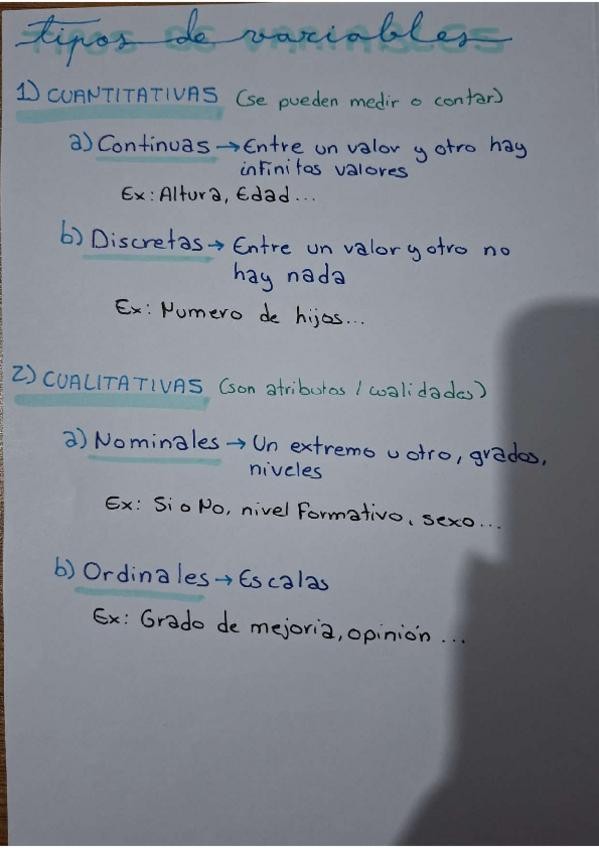 tipos de variables
TIPOS DE VARIABLES
1) CUANTITATIVAS (se pueden medir o contar)
a) Continuas → Entre un valor y otro hay
infinitos valores
Ex: Altura, Edad...
b) Discretas → Entre un valor y otro no
hay nada
Ex: Numero de hijos...
2) CUALITATIVAS (son atributos / cualidades)
a) Nominales → Un extremo u otro, grados,
niveles
Ex: Si o No, nivel formativo, sexo...
b) Ordinales → Escalas
Ex: Grado de mejoria, opinión ...